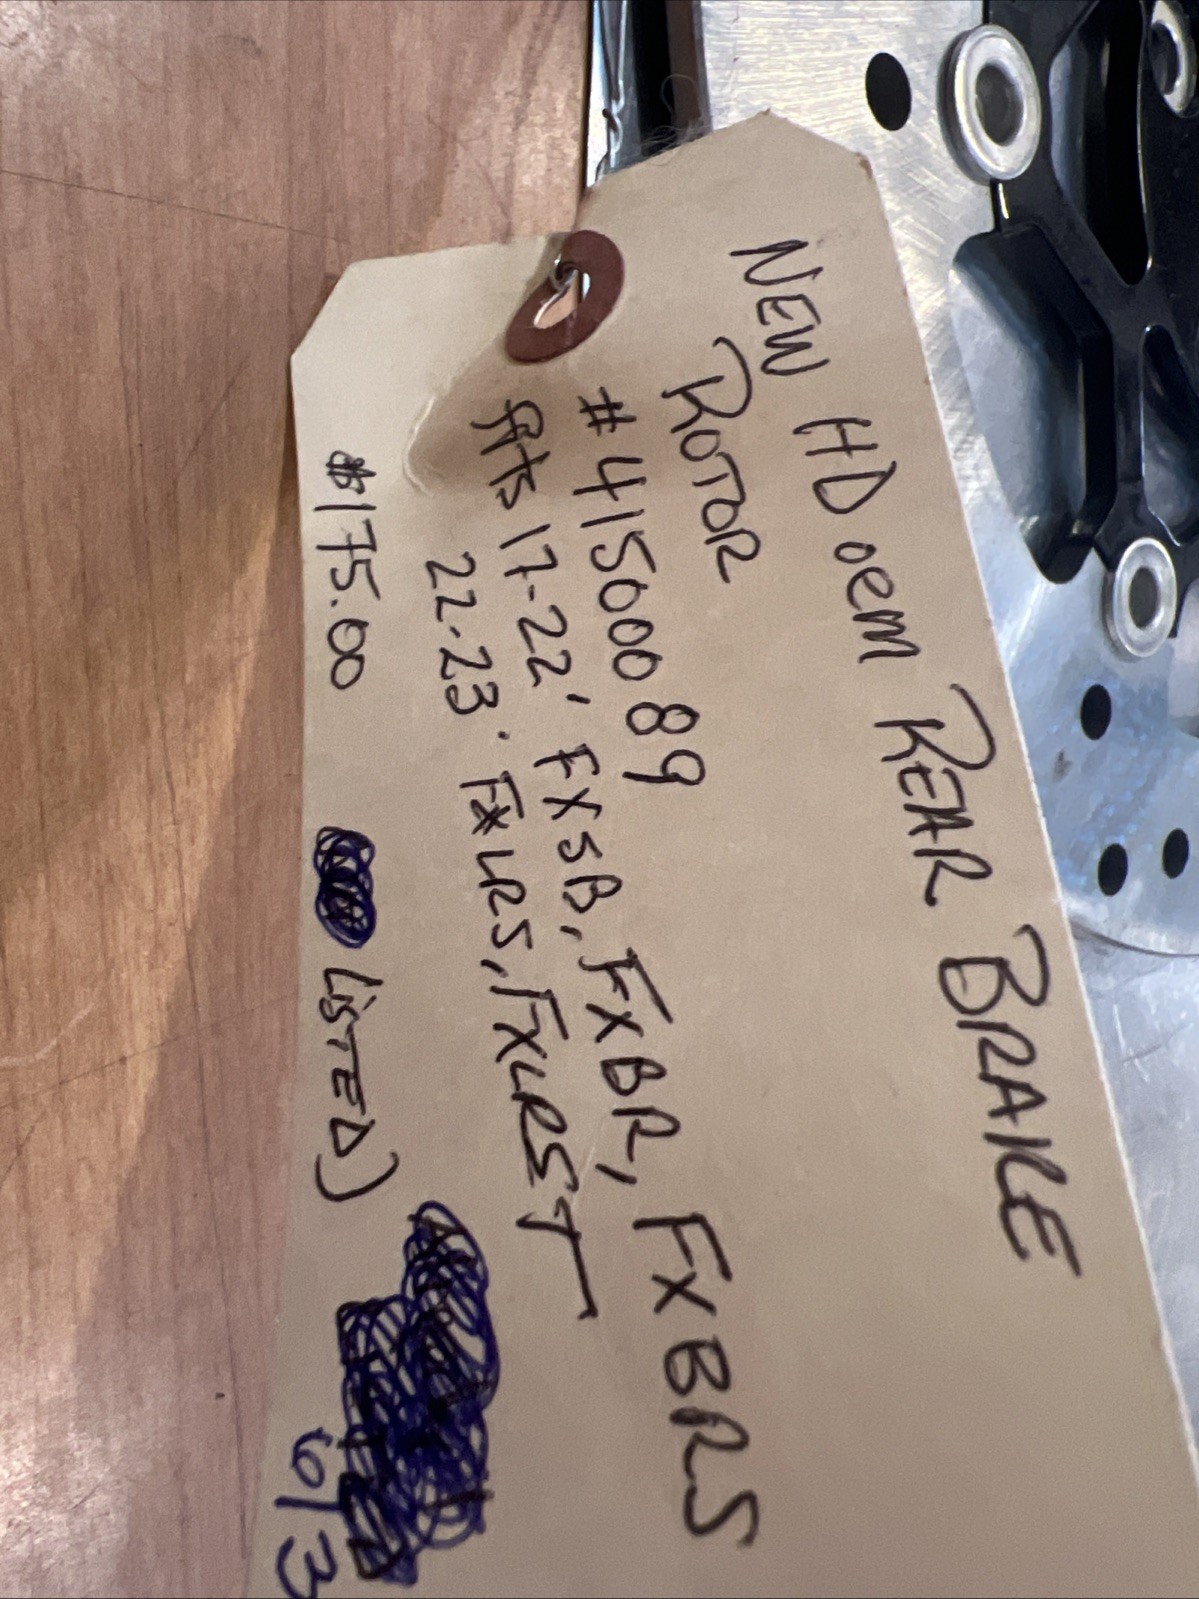 NEW HD oem REAR BRAKE
ROTOR
#41500089
fits 17-22' FXSB, FXBR, FXBRS
22-23. FXLRS, FXLRST
$175.00 LISTED)
6/3